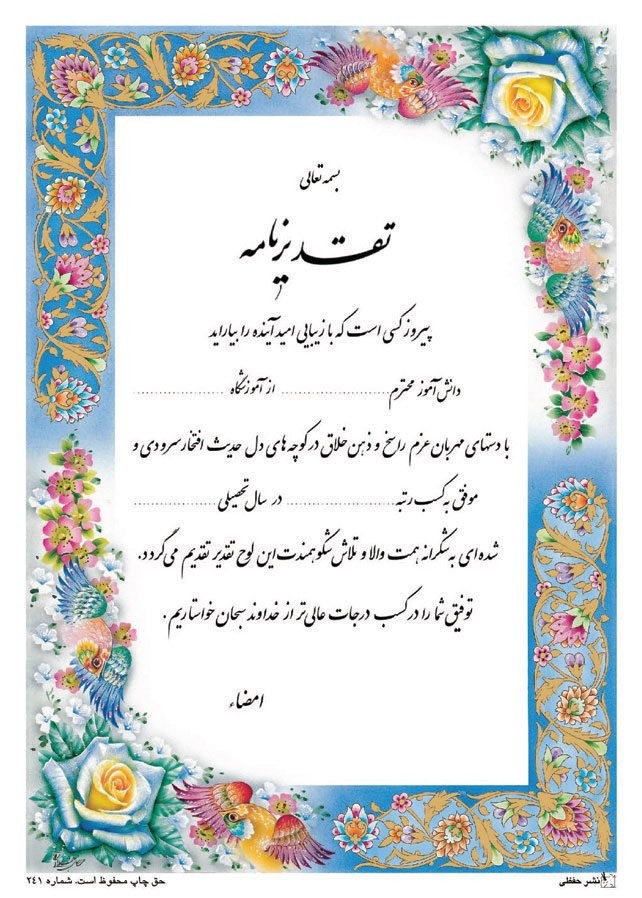 بسمه تعالی
تقدیرنامه
پیروز کسی است که با زیبایی امید آینده را بیاراید
دانش‌آموز محترم .......................... از آموزشگاه ......................
با دستهای مهربان عزم راسخ و ذهن خلاق در کوچه‌های دل حدیث افتخار سرودی و
موفق به کسب رتبه .......................... در سال تحصیلی ......................
شده‌ای به شکرانه همت والا و تلاش شکوهمندت این لوح تقدیر تقدیم می‌گردد.
توفیق شما را در کسب درجات عالی‌تر از خداوند سبحان خواستاریم.
امضاء
نشر حفظی
حق چاپ محفوظ است. شماره ۲۴۱